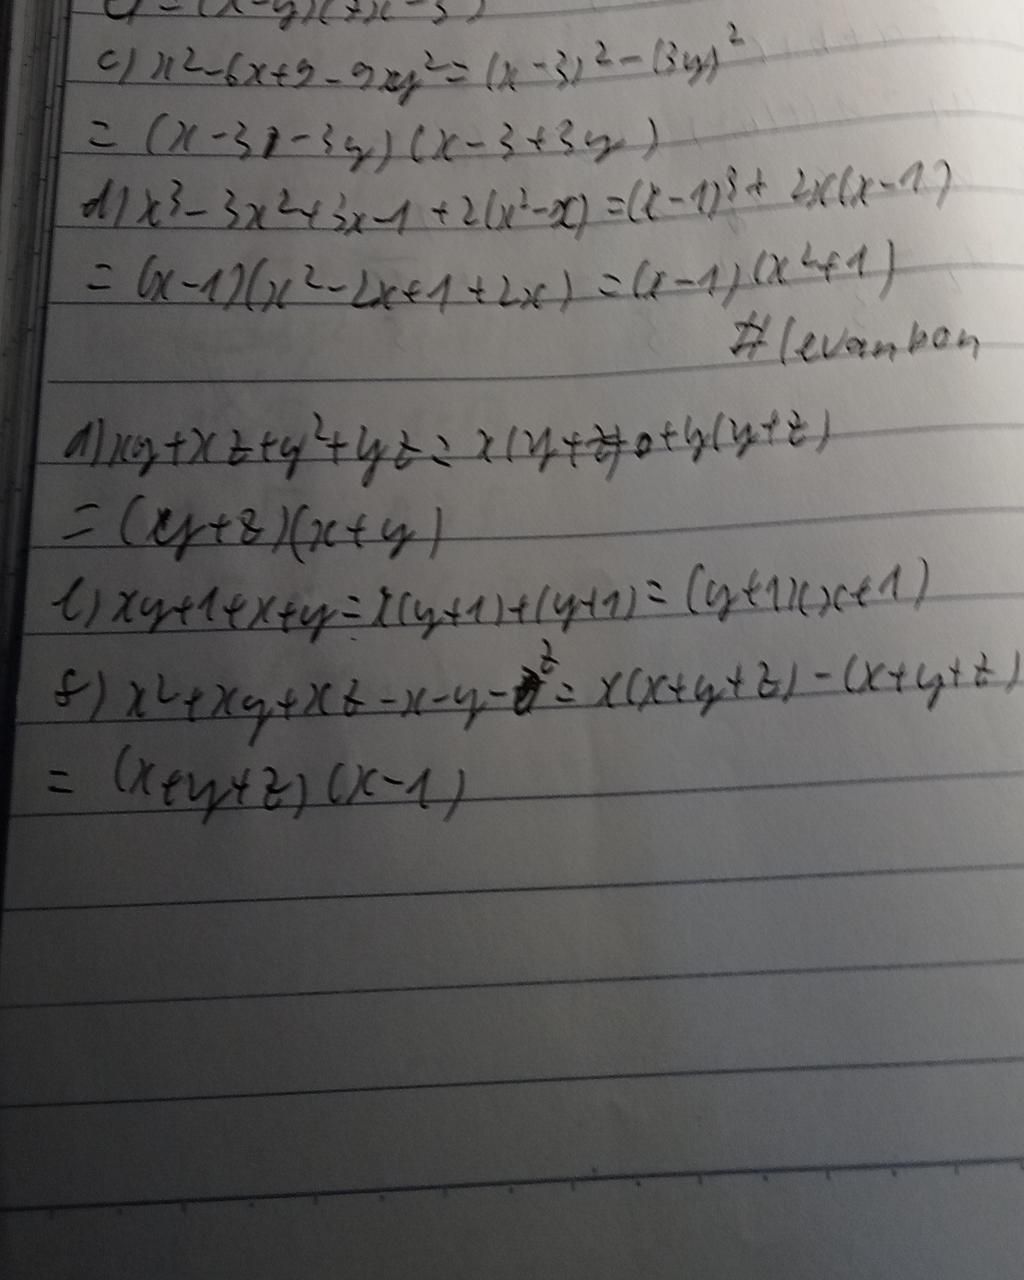 = (x-y)(7x-3)
c) x²-6x+9-9y²=(x-3)²-(3y)²
= (x-3-3y)(x-3+3y)
d) x³-3x²+3x-1+2(x²-x)=(x-1)³+2x(x-1)
= (x-1)(x²-2x+1+2x) = (x-1)(x²+1)
#levanhon
d) xy+xz+y²+yz= x(y+z)+y(y+z)
= (y+z)(x+y)
e) xy+1+x+y=x(y+1)+(y+1)=(y+1)(x+1)
f) x²+xy+xz-x-y-z= x(x+y+z)-(x+y+z)
= (x+y+z)(x-1)